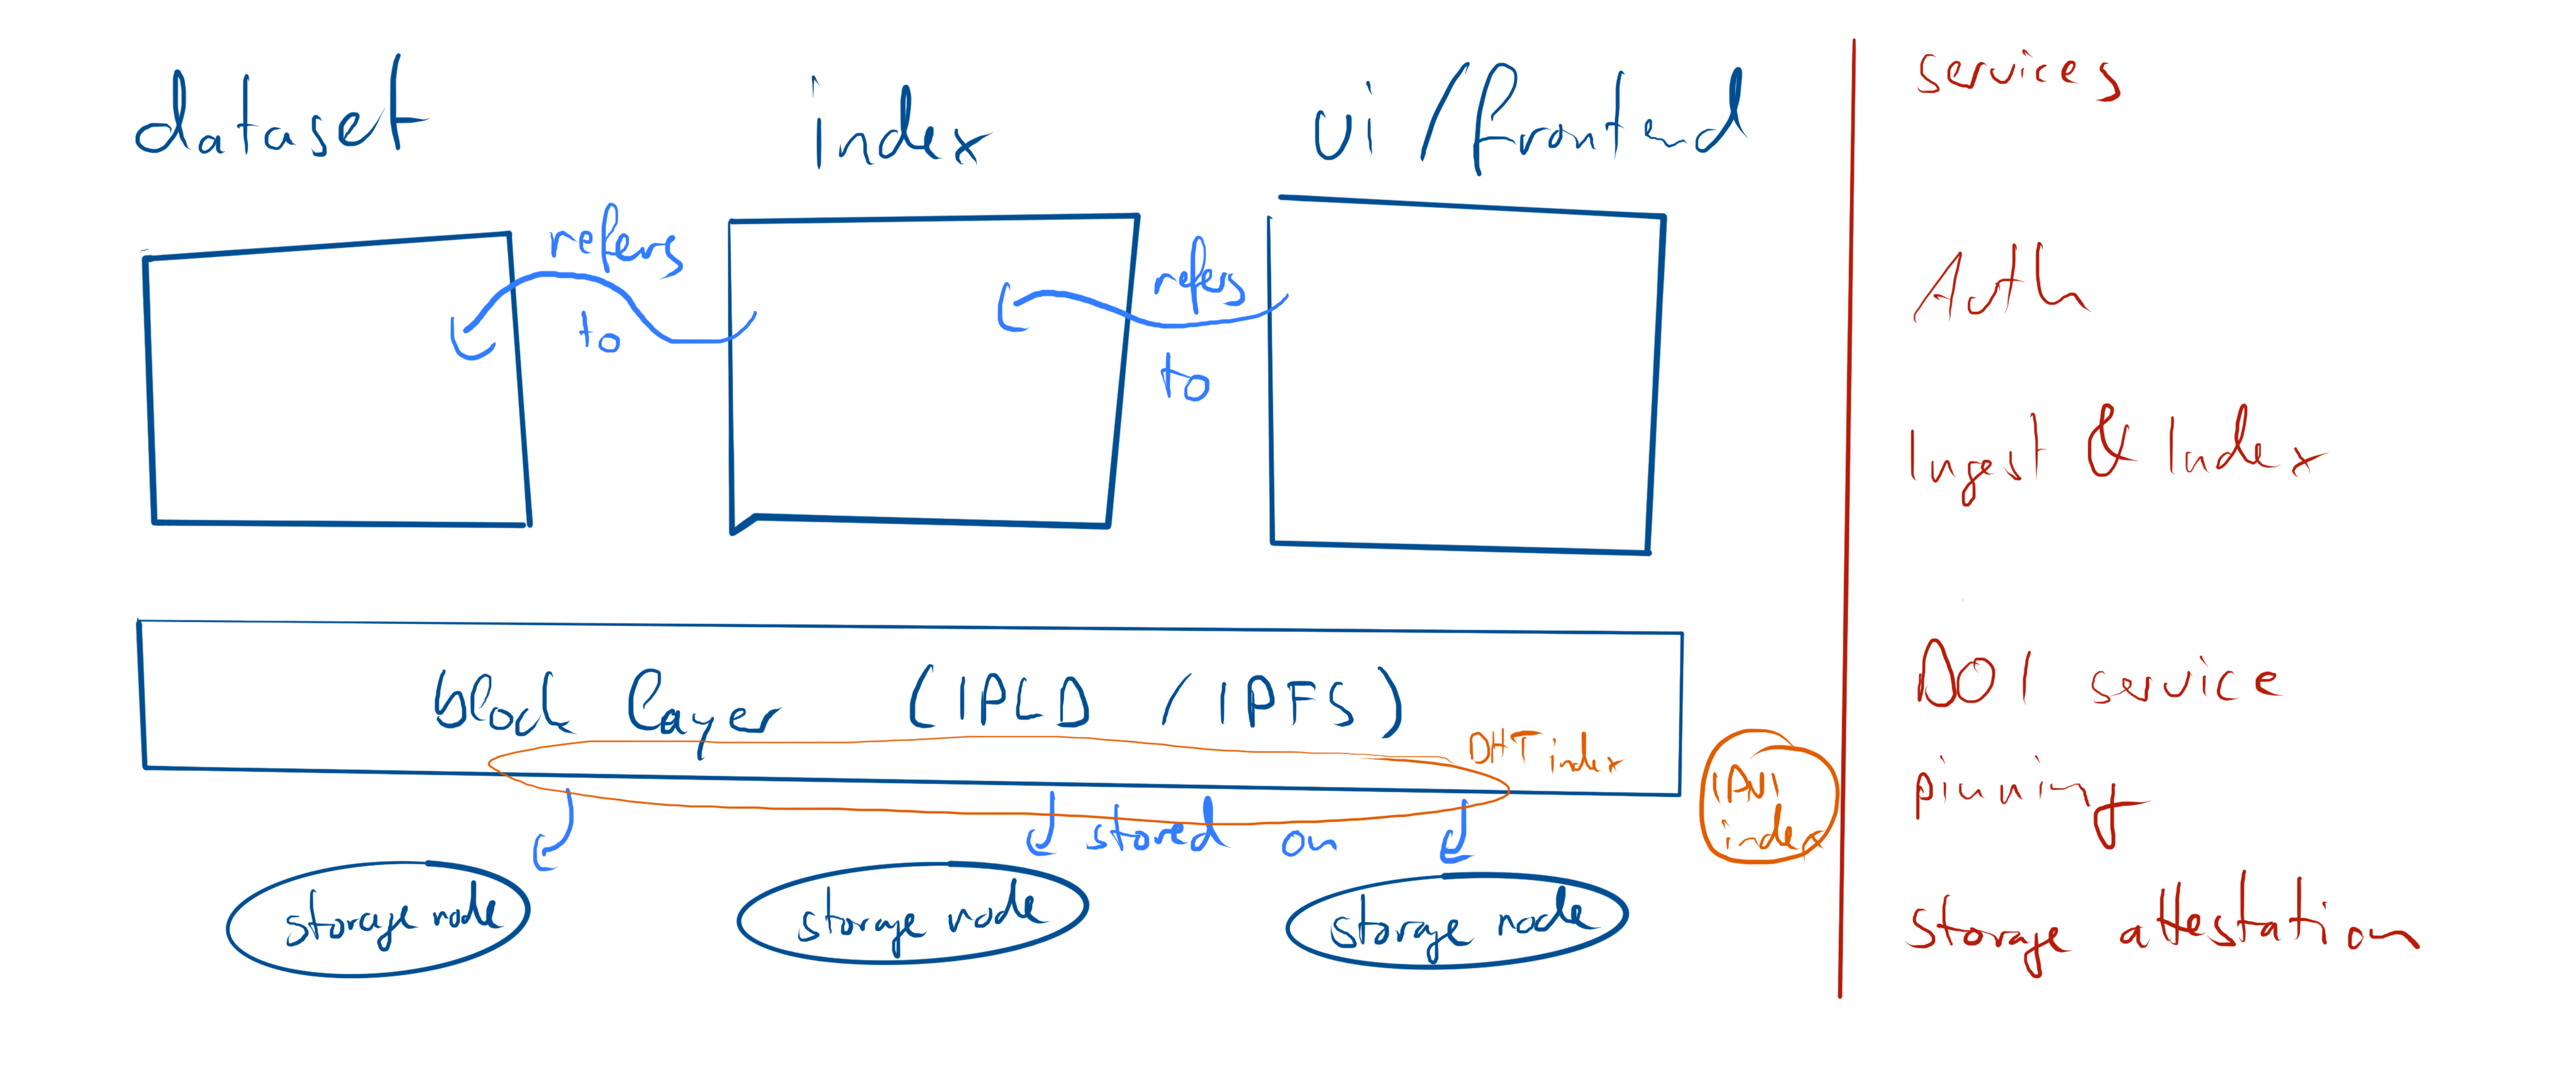 dataset
index
ui / frontend
refers
to
refers
to
block layer (IPLD / IPFS)
DHT index
IPNI
index
stored on
storage node
storage node
storage node
services
Auth
Ingest & Index
DOI service
pinning
storage attestation